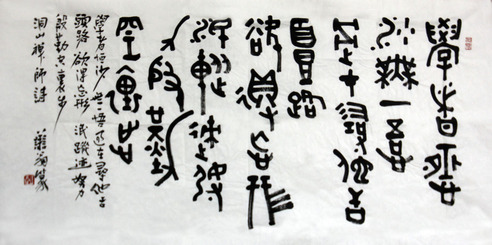 學者恆
沙無一悟
過在尋他舌
頭路
欲得忘形
泯蹤跡努
力殷勤
空裏步
學者恒沙無一悟過在尋他舌
頭路欲得忘形泯蹤跡努力
殷勤空裏步
洞山禪師詩